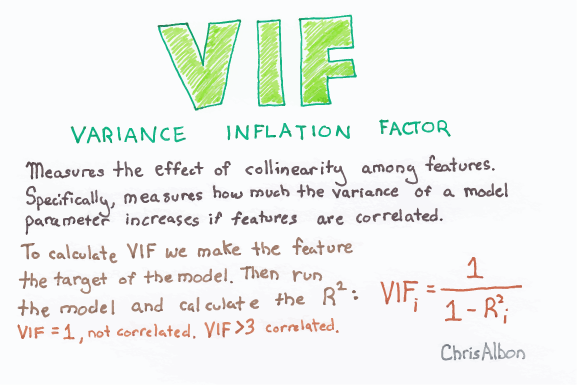 VIF
VARIANCE INFLATION FACTOR
Measures the effect of collinearity among features.
Specifically, measures how much the variance of a model
parameter increases if features are correlated.
To calculate VIF we make the feature
the target of the model. Then run
the model and calculate the R²:
VIF = 1, not correlated. VIF >3 correlated.
VIFᵢ = 1 / (1 - R²ᵢ)
ChrisAlbon